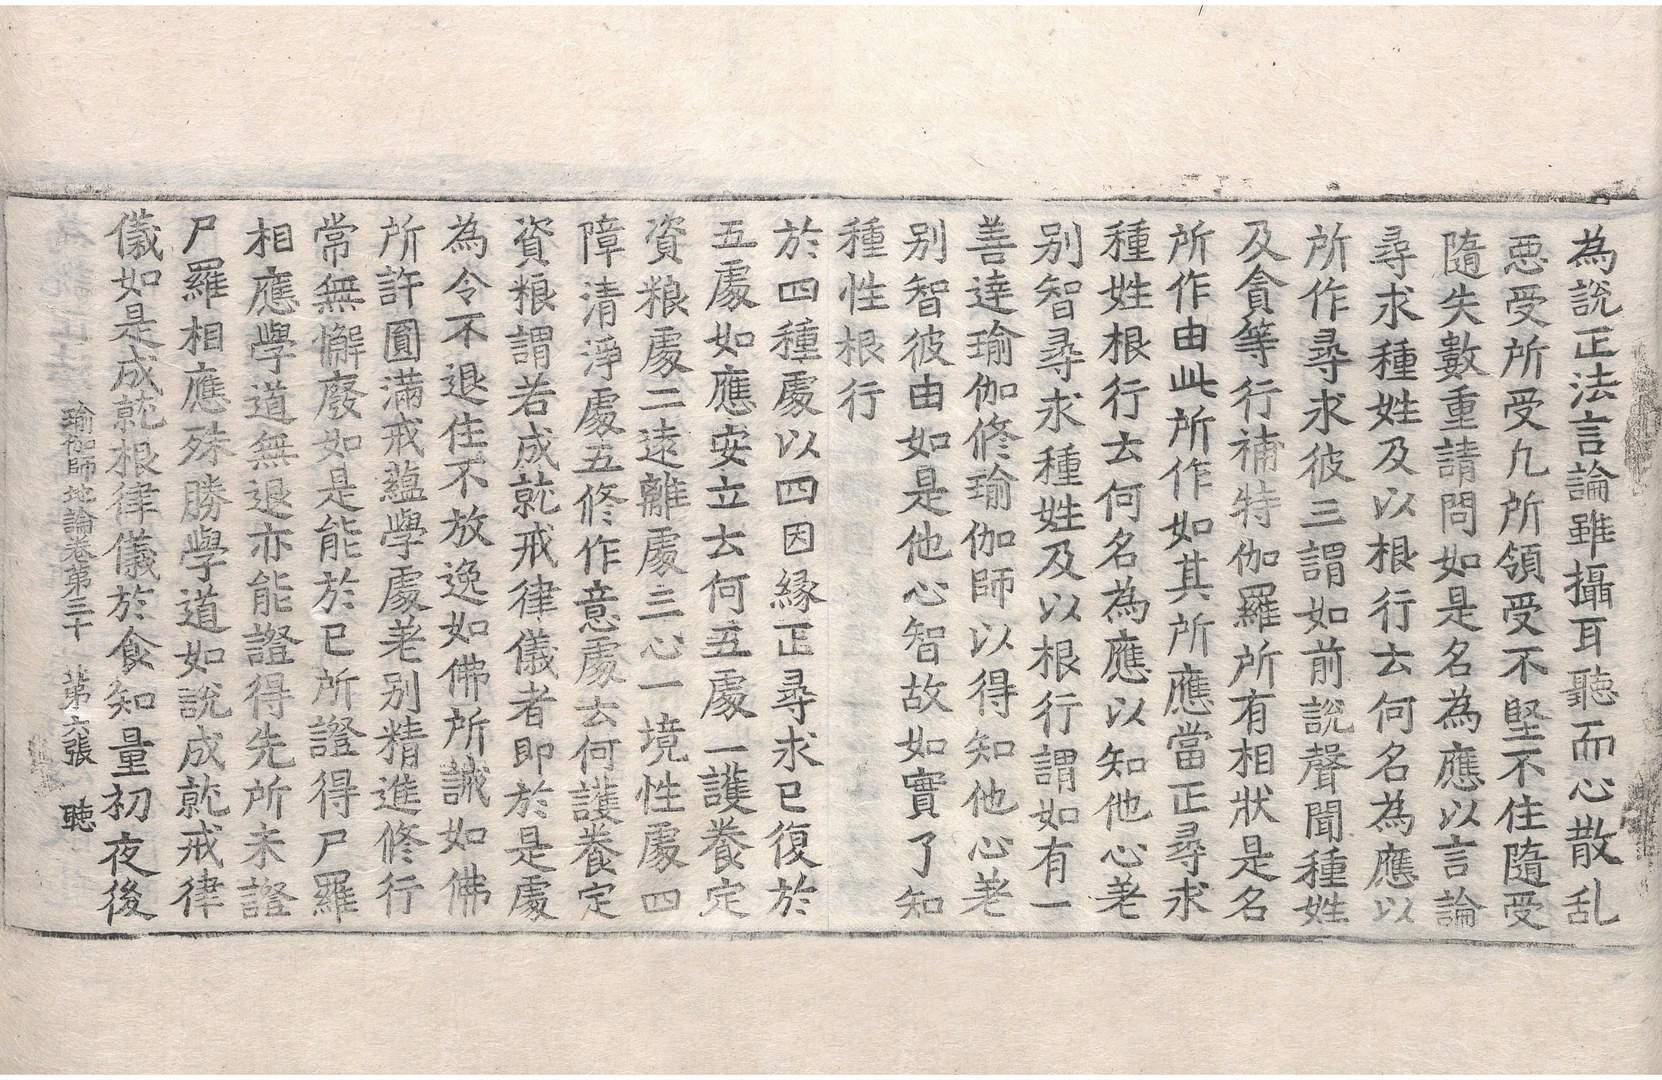 為說正法言論雖攝耳聽而心散乱
惡受所受凢所領受不堅不住隨受
隨失數重請問如是名為應以言論
尋求種姓及以根行云何名為應以
所作尋求彼三謂如前說聲聞種姓
及貪等行補特伽羅所有相狀是名
所作由此所作如其所應當正尋求
種姓根行云何名為應以知他心差
別智尋求種姓及以根行謂如有一
善達瑜伽修瑜伽師以得知他心差
別智彼由如是他心智故如實了知
種性根行
於四種處以四因緣正尋求已復於
五處如應安立云何五處一護養定
資粮處二遠離處三心一境性處四
障清淨處五修作意處云何護養定
資粮謂若成就戒律儀者即於是處
為令不退住不放逸如佛所誡如佛
所許圓滿戒蘊學處差別精進修行
常無懈廢如是能於已所證得尸羅
相應學道無退亦能證得先所未證
尸羅相應殊勝學道如說成就戒律
儀如是成就根律儀於食知量初夜後
瑜伽師地論卷第三十　第六張　聴